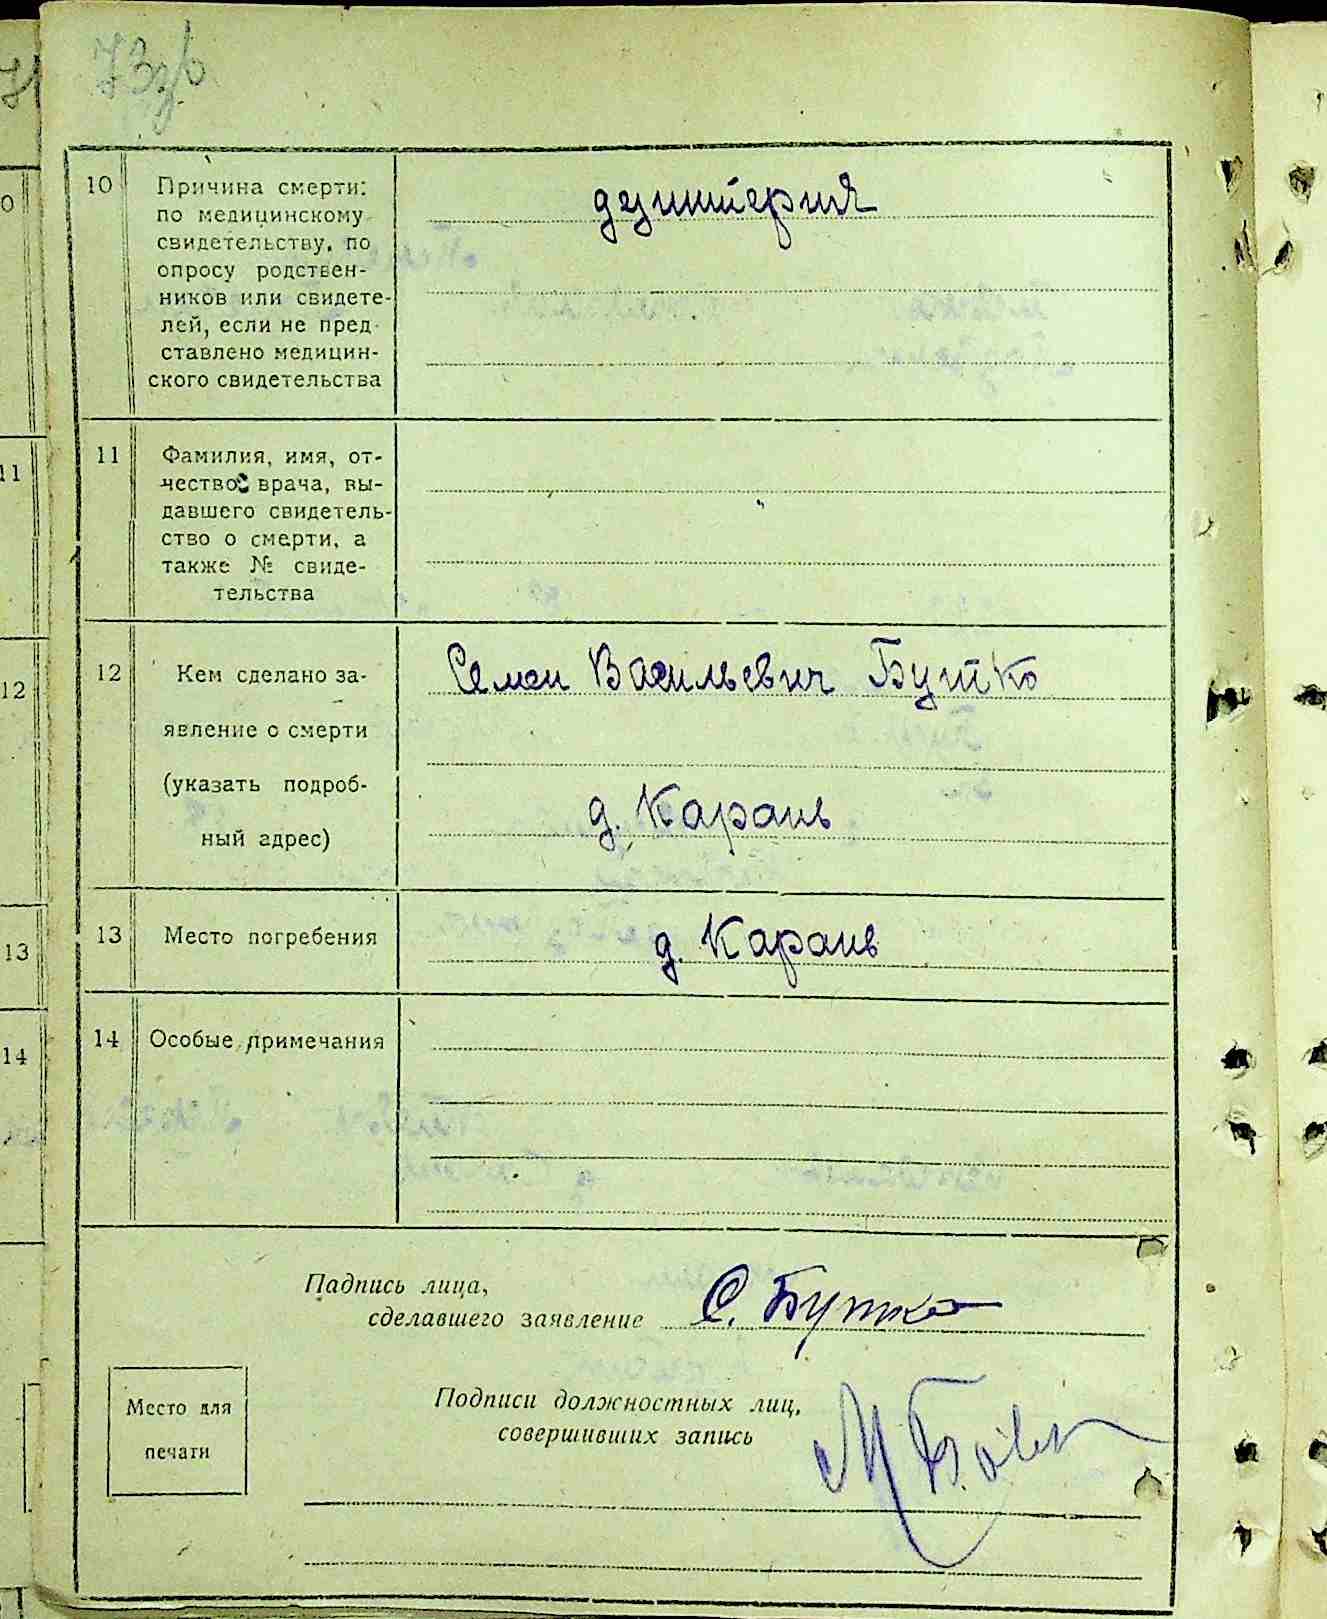 10
Причина смерти:
по медицинскому
свидетельству, по
опросу родствен-
ников или свидете-
лей, если не пред-
ставлено медицин-
ского свидетельства
дезинтерия
11
Фамилия, имя, от-
чество врача, вы-
давшего свидетель-
ство о смерти, а
также № свиде-
тельства
12
Кем сделано за-
явление о смерти
(указать подроб-
ный адрес)
Семен Васильевич Бутко
д. Карань
13
Место погребения
д. Карань
14
Особые примечания
Падпись лица,
сделавшего заявление С. Бутко
Место для
печати
Подписи должностных лиц,
совершивших запись
11
12
13
14